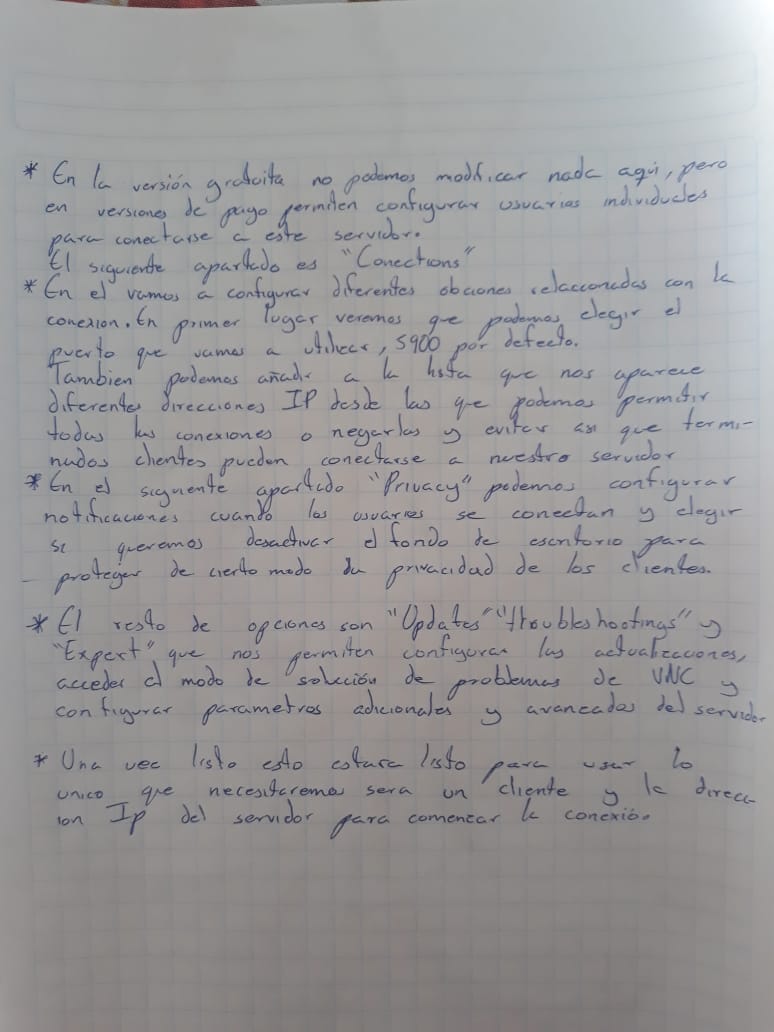 * En la versión gratuita no podemos modificar nada aqui, pero
en versiones de pago permiten configurar usuarios individuales
para conectarse a este servidor.
El siguiente apartado es "Conections"
* En el vamos a configurar diferentes obciones relaccionadas con la
conexion. En primer lugar veremos que podemos elegir el
puerto que vamos a utilizar, 5900 por defecto.
Tambien podemos añadir a la lista que nos aparece
diferentes direcciones IP desde las que podemos permitir
todas las conexiones o negarlas y evitar asi que termi-
nados clientes pueden conectarse a nuestro servidor
* En el siguiente apartado "Privacy" podemos configurar
notificaciones cuando los usuarios se conectan y elegir
si queremos desactivar el fondo de escritorio para
proteger de cierto modo la privacidad de los clientes.
* El resto de opciones son "Updates" "troubleshootings" y
"Expert" que nos permiten configurar las actualizaciones,
acceder al modo de solución de problemas de VNC y
configurar parametros adicionales y avanzados del servidor
* Una vez listo esto estara listo para usar lo
unico que necesitaremos sera un cliente y la direcc-
ion Ip del servidor para comenzar la conexión.